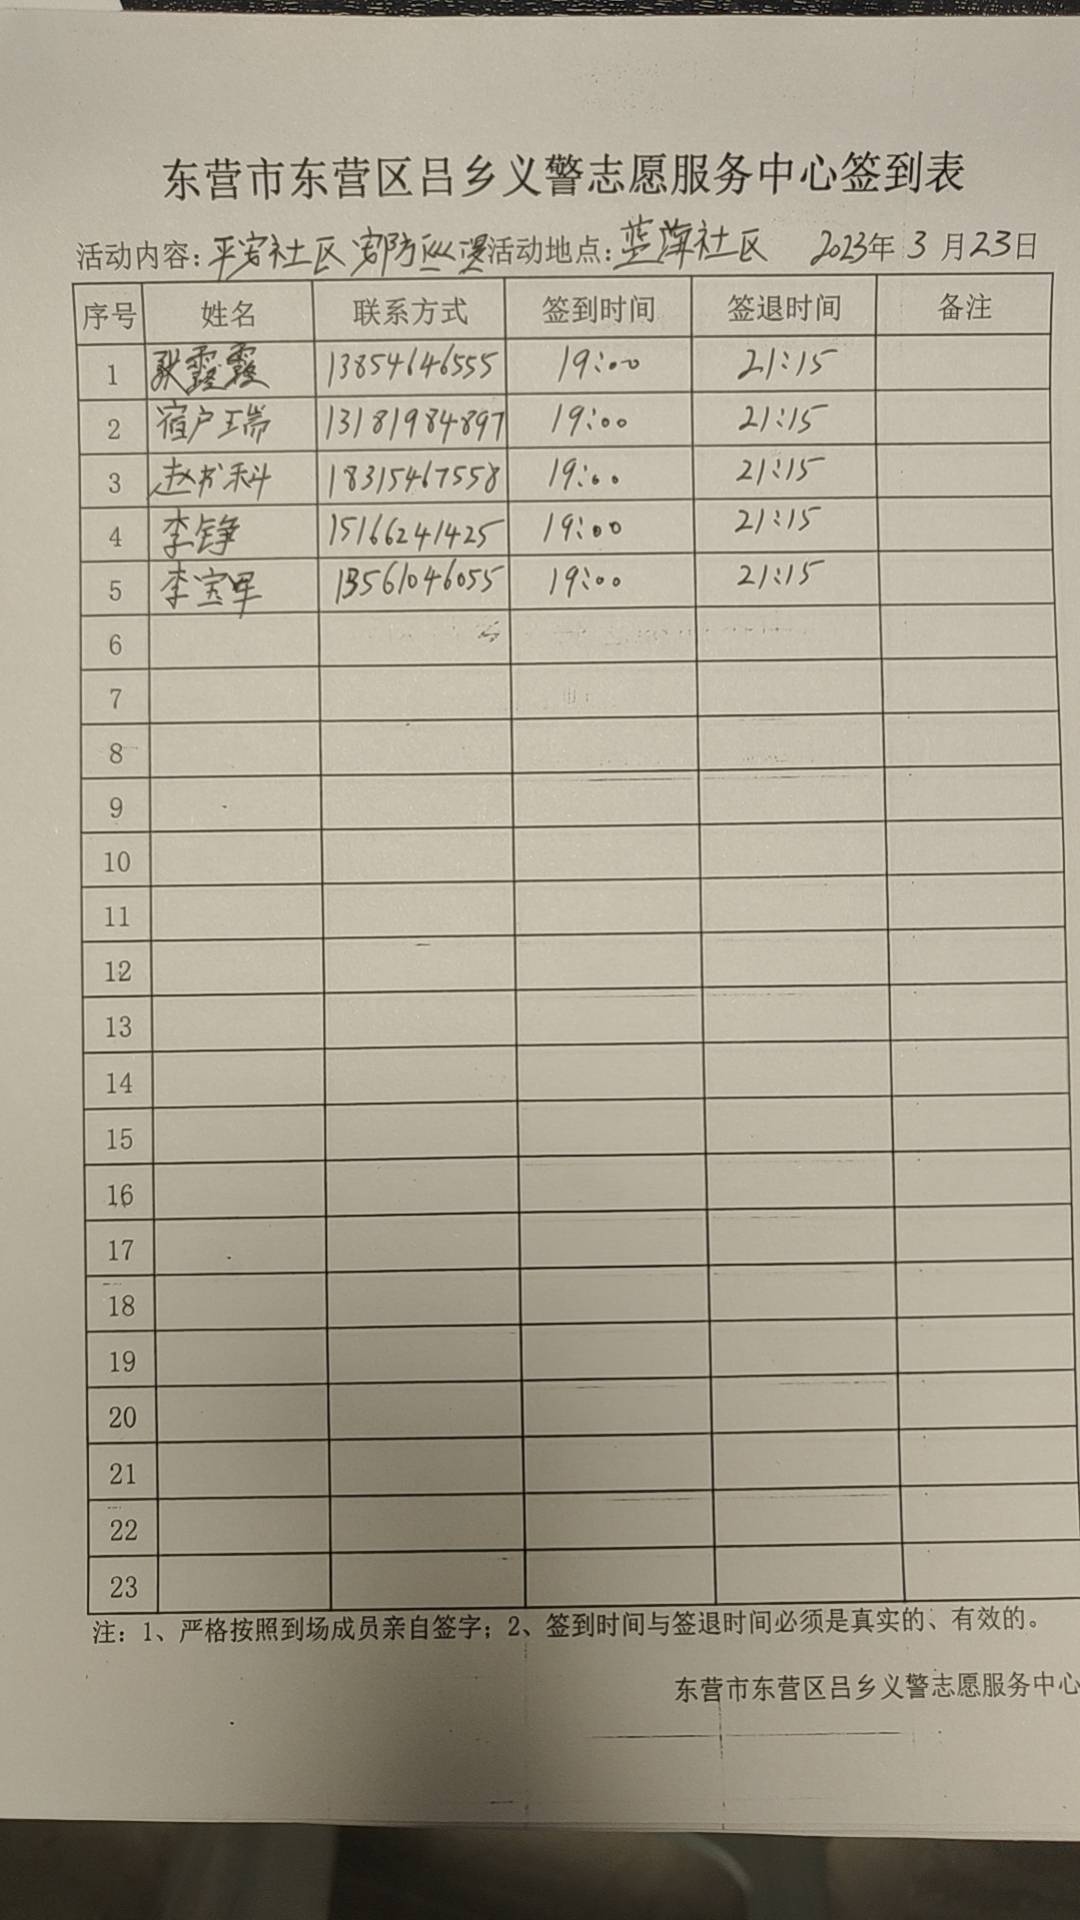 东营市东营区吕乡义警志愿服务中心签到表
活动内容:平安社区安防巡逻活动地点:蓝海社区 2023年3月23日
序号 姓名 联系方式 签到时间 签退时间 备注
1 张霞霞 13854646555 19:00 21:15
2 宿户瑞 13181984897 19:00 21:15
3 赵书科 18315467558 19:00 21:15
4 李铮 15166241425 19:00 21:15
5 李宝军 13561046055 19:00 21:15
6
7
8
9
10
11
12
13
14
15
16
17
18
19
20
21
22
23
注:1、严格按照到场成员亲自签字;2、签到时间与签退时间必须是真实的、有效的。
东营市东营区吕乡义警志愿服务中心